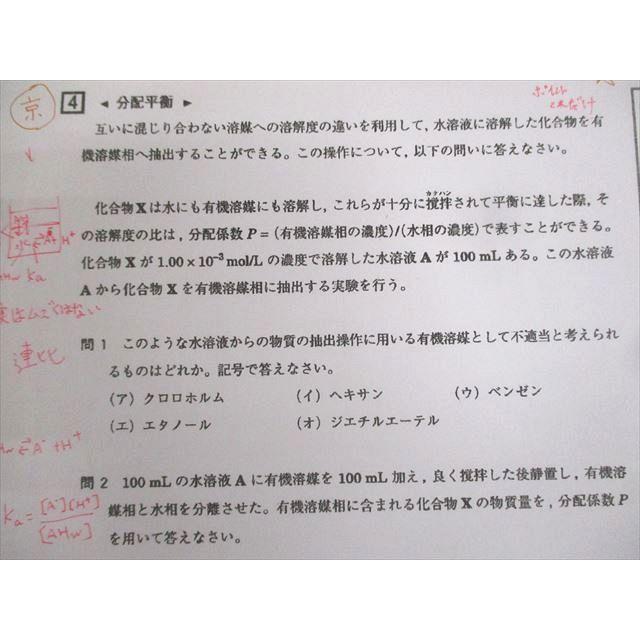 京
4 ◀ 分配平衡 ▶
ポイント
これだけ
互いに混じり合わない溶媒への溶解度の違いを利用して，水溶液に溶解した化合物を有
機溶媒相へ抽出することができる。この操作について，以下の問いに答えなさい。
カクハン
化合物Xは水にも有機溶媒にも溶解し，これらが十分に撹拌されて平衡に達した際，そ
の溶解度の比は，分配係数 P＝(有機溶媒相の濃度)/(水相の濃度)で表すことができる。
化合物 X が 1.00×10⁻³ mol/L の濃度で溶解した水溶液 A が 100 mL ある。この水溶液
A から化合物 X を有機溶媒相に抽出する実験を行う。
Ka
連比
問1 このような水溶液からの物質の抽出操作に用いる有機溶媒として不適当と考えられ
るものはどれか。記号で答えなさい。
(ア) クロロホルム (イ) ヘキサン (ウ) ベンゼン
(エ) エタノール (オ) ジエチルエーテル
Hw ⇄ A⁻ + H⁺
問2 100 mL の水溶液 A に有機溶媒を 100 mL 加え，良く撹拌した後静置し，有機溶
媒相と水相を分離させた。有機溶媒相に含まれる化合物 X の物質量を，分配係数 P
を用いて答えなさい。
Ka = [A⁻][H⁺] / [AHw]